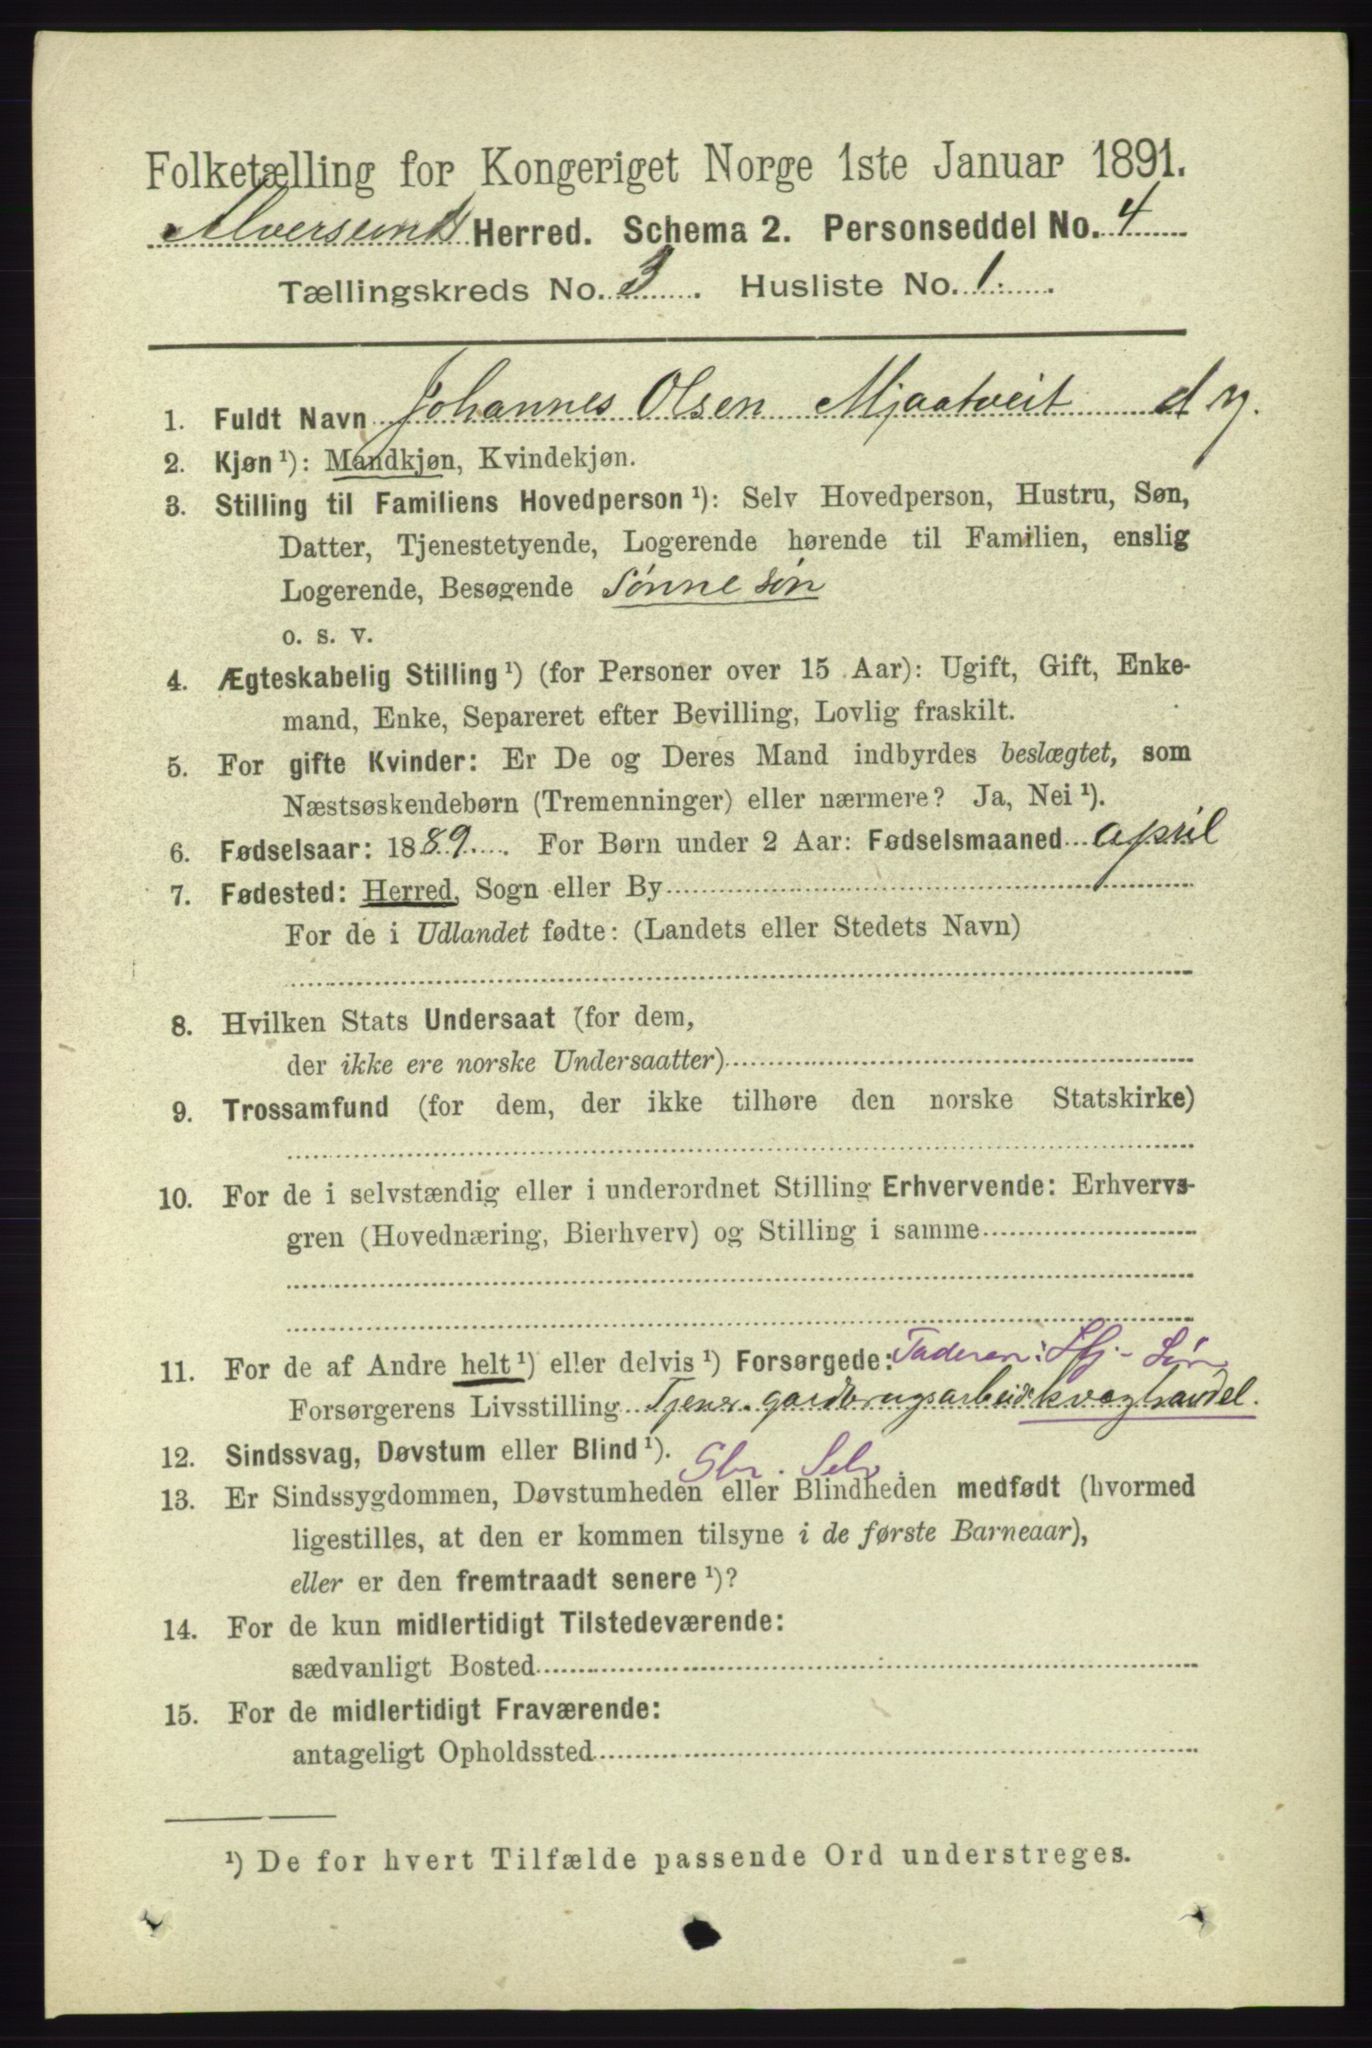 Folketælling for Kongeriget Norge 1ste Januar 1891.
Alversund Herred. Schema 2. Personseddel No. 4
Tællingskreds No. 3. Husliste No. 1.
1. Fuldt Navn Johannes Olsen Mjaatveit d y.
2. Kjøn ¹): Mandkjøn, Kvindekjøn.
3. Stilling til Familiens Hovedperson ¹): Selv Hovedperson, Hustru, Søn,
Datter, Tjenestetyende, Logerende hørende til Familien, enslig
Logerende, Besøgende Sønne søn
o. s. v.
4. Ægteskabelig Stilling ¹) (for Personer over 15 Aar): Ugift, Gift, Enke-
mand, Enke, Separeret efter Bevilling, Lovlig fraskilt.
5. For gifte Kvinder: Er De og Deres Mand indbyrdes beslægtet, som
Næstsøskendebørn (Tremenninger) eller nærmere? Ja, Nei ¹).
6. Fødselsaar: 1889. For Børn under 2 Aar: Fødselsmaaned april
7. Fødested: Herred, Sogn eller By
For de i Udlandet fødte: (Landets eller Stedets Navn)
8. Hvilken Stats Undersaat (for dem,
der ikke ere norske Undersaatter)
9. Trossamfund (for dem, der ikke tilhøre den norske Statskirke)
10. For de i selvstændig eller i underordnet Stilling Erhvervende: Erhvervs-
gren (Hovednæring, Bierhverv) og Stilling i samme
11. For de af Andre helt ¹) eller delvis ¹) Forsørgede: Faderen: Søn
Forsørgerens Livsstilling Tjener gardbrugsarbeide kvæghandel.
12. Sindssvag, Døvstum eller Blind ¹). Gbr. Selv.
13. Er Sindssygdommen, Døvstumheden eller Blindheden medfødt (hvormed
ligestilles, at den er kommen tilsyne i de første Barneaar),
eller er den fremtraadt senere ¹)?
14. For de kun midlertidigt Tilstedeværende:
sædvanligt Bosted
15. For de midlertidigt Fraværende:
antageligt Opholdssted
¹) De for hvert Tilfælde passende Ord understreges.